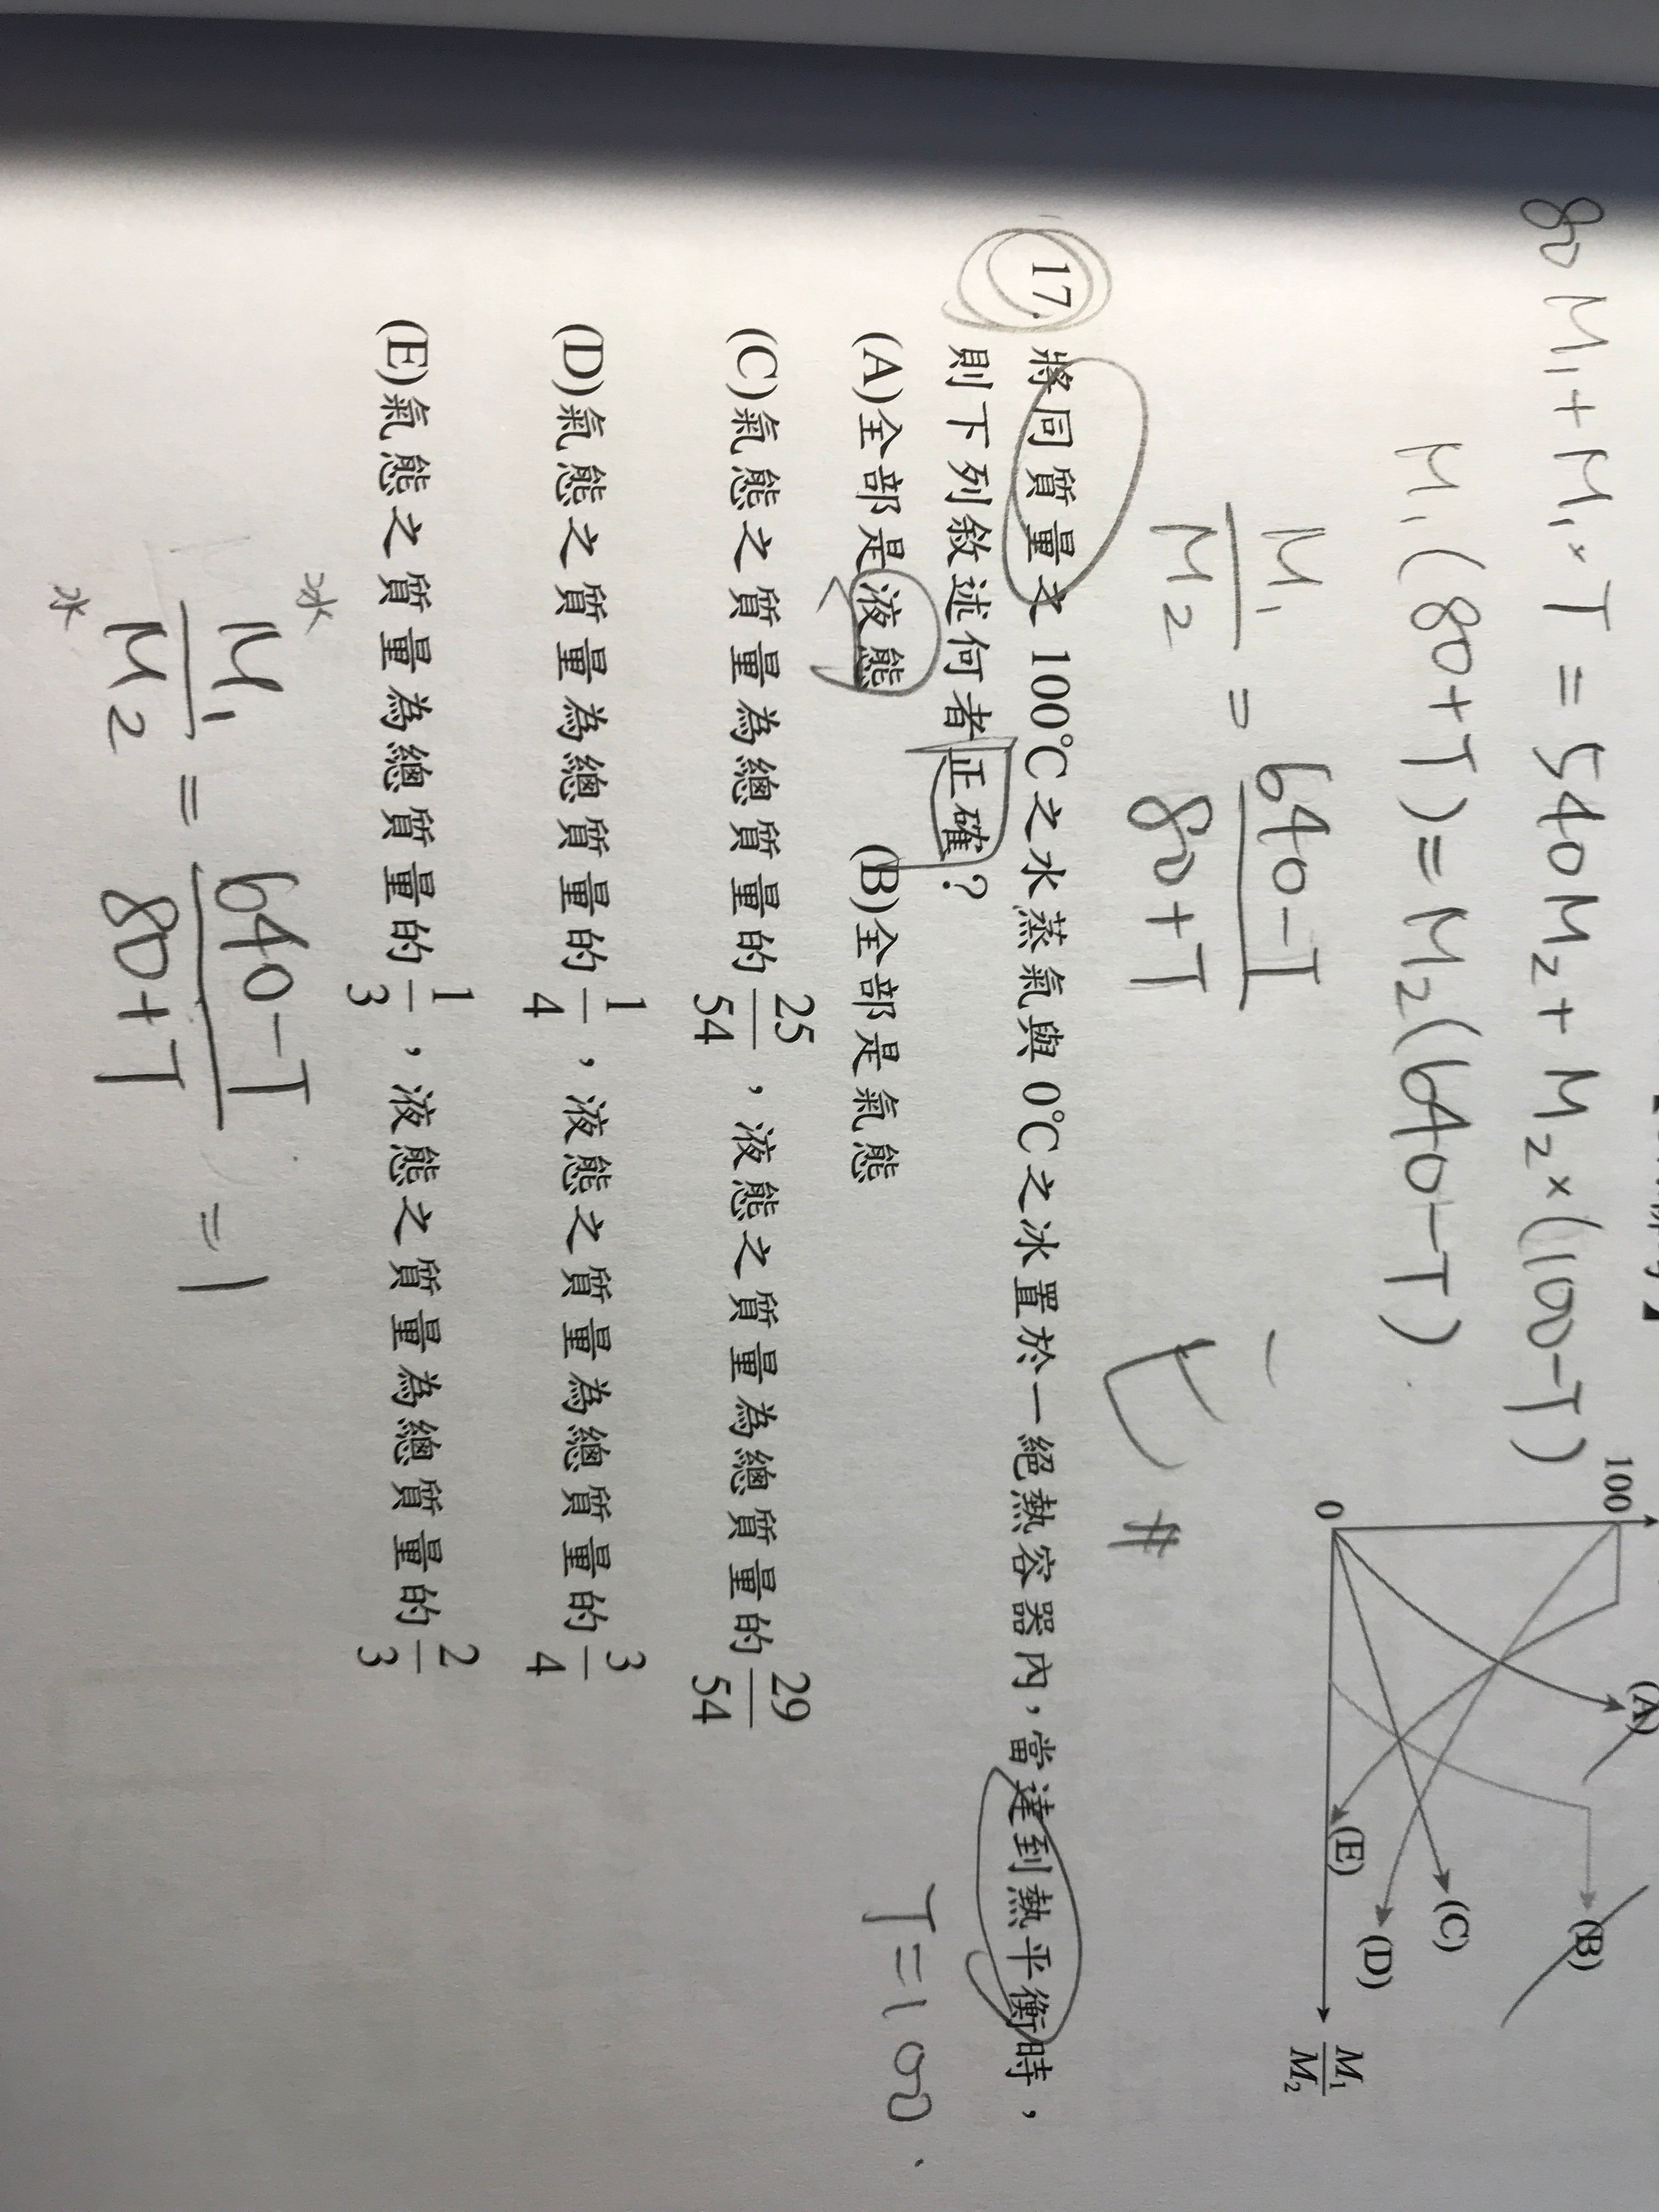 80M₁+M₁×T=540M₂+M₂×(100-T)
M₁(80+T)=M₂(640-T)
M₁/M₂ = 640-T/80+T
100
0
(A)
(B)
(C)
(D)
(E)
M₁/M₂
17. 將同質量之 100℃之水蒸氣與 0℃之冰置於一絕熱容器內，當達到熱平衡時，
則下列敘述何者正確？
(A)全部是液態 (B)全部是氣態
T=100
(C)氣態之質量為總質量的 25/54，液態之質量為總質量的 29/54
(D)氣態之質量為總質量的 1/4，液態之質量為總質量的 3/4
(E)氣態之質量為總質量的 1/3，液態之質量為總質量的 2/3
冰
水
M₁/M₂ = 640-T/80+T = 1